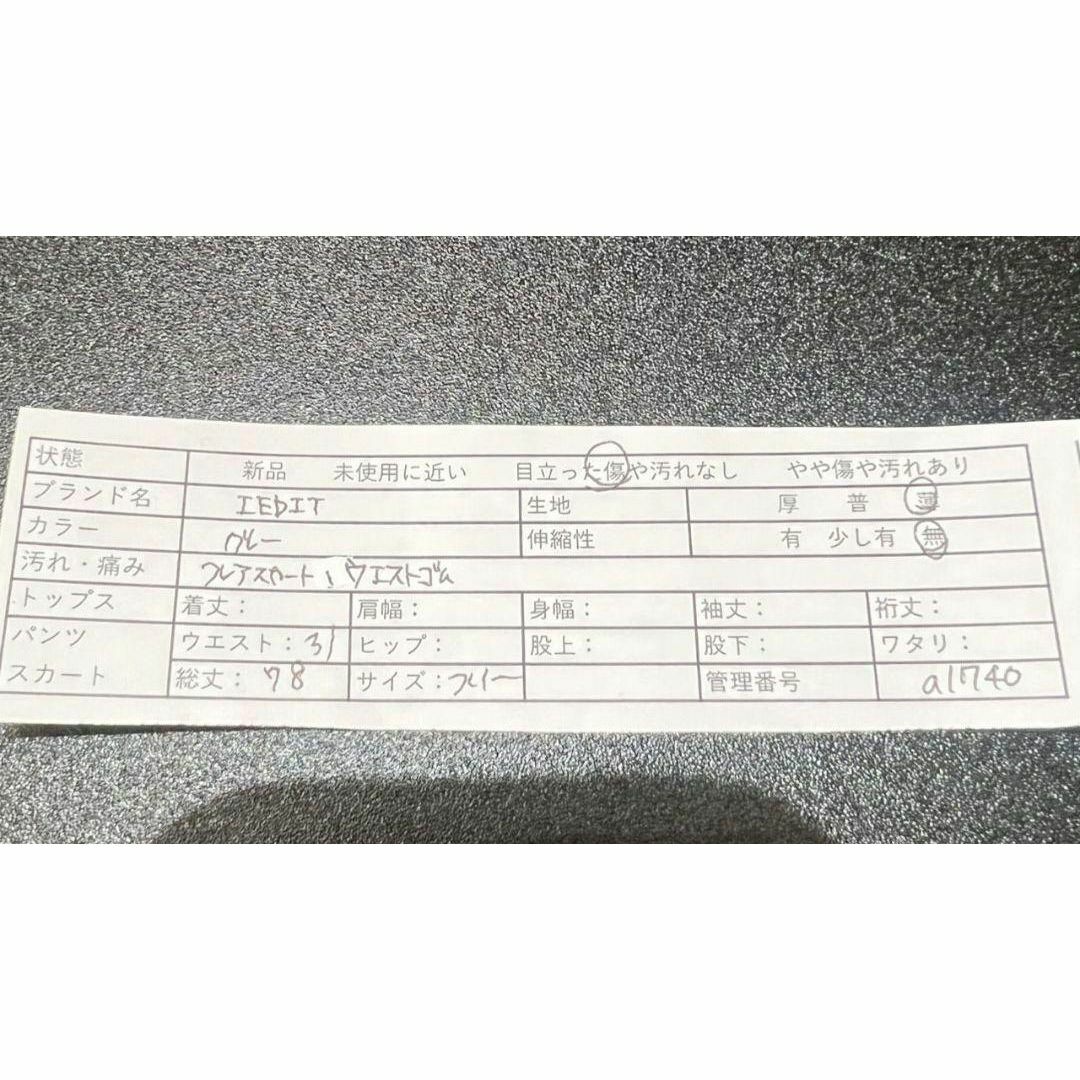 状態 新品 未使用に近い 目立った傷や汚れなし やや傷や汚れあり
ブランド名 IEDIT 生地 厚 普 薄
カラー グレー 伸縮性 有 少し有 無
汚れ・痛み フレアスカート、ウエストゴム
トップス 着丈： 肩幅： 身幅： 袖丈： 裄丈：
パンツ ウエスト：31 ヒップ： 股上： 股下： ワタリ：
スカート 総丈：78 サイズ：フリー 管理番号 a1740